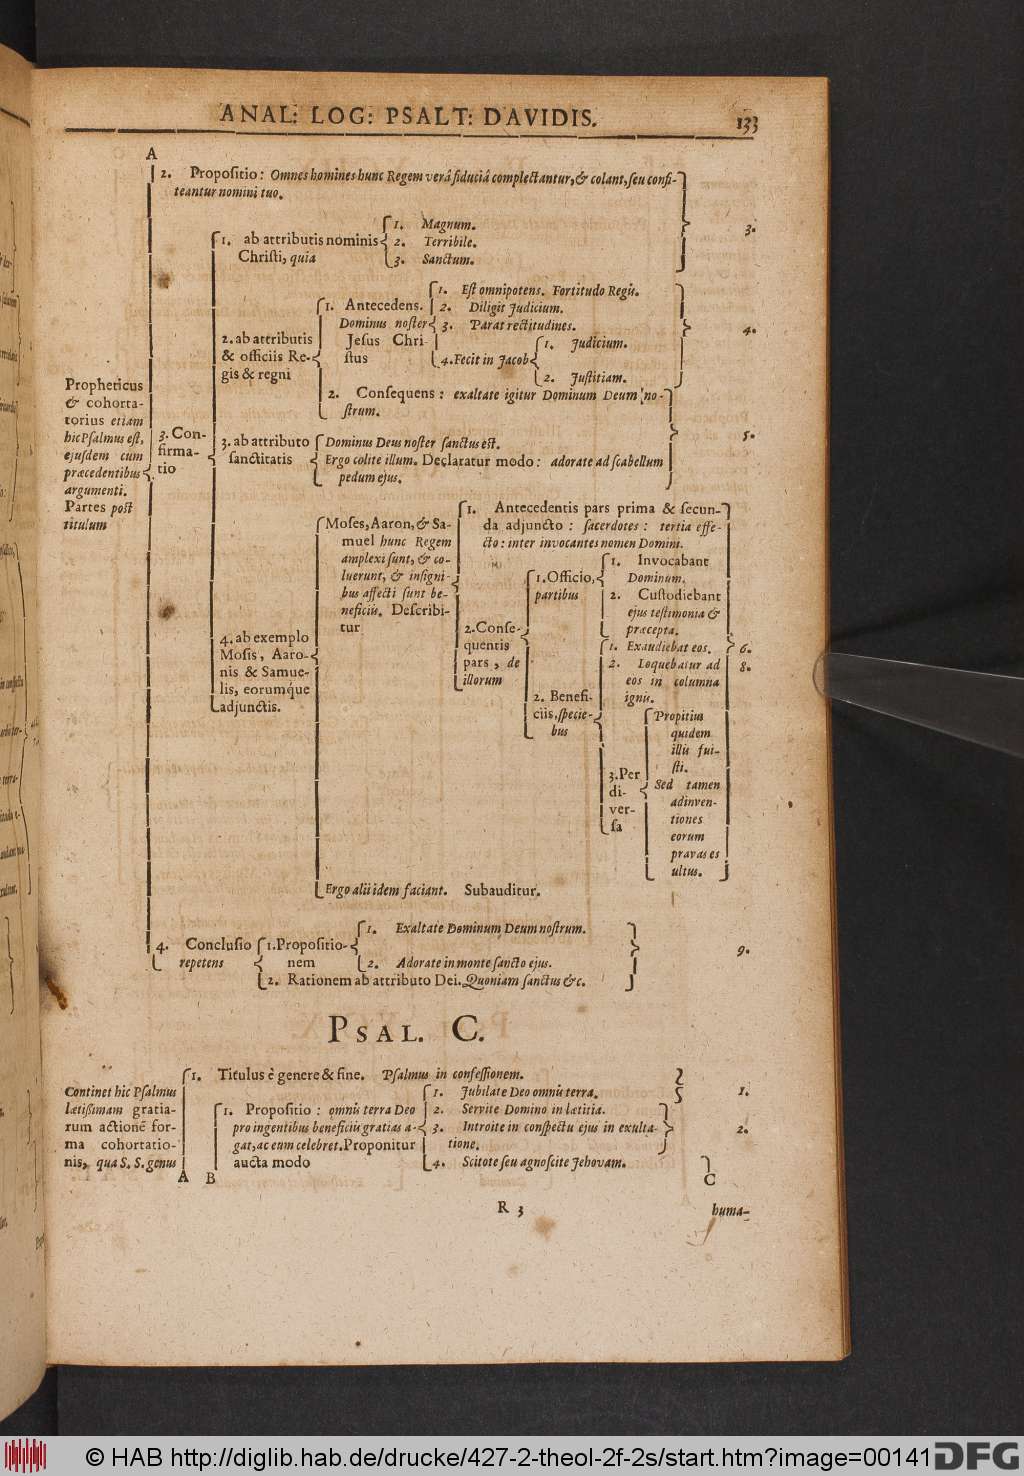 ANAL: LOG: PSALT: DAVIDIS. 133
A
2. Propositio: Omnes homines hunc Regem verâ fiduciâ complectantur, & colant, seu confi-
teantur nomini tuo.
3.
1. ab attributis nominis
Christi, quia
1. Magnum.
2. Terribile.
3. Sanctum.
2. ab attributis
& officiis Re-
gis & regni
1. Antecedens.
Dominus noster
Jesus Chri-
stus
1. Est omnipotens. Fortitudo Regis.
2. Diligit Judicium.
3. Parat rectitudines.
4. Fecit in Jacob
1. Judicium.
2. Justitiam.
4.
2. Consequens: exaltate igitur Dominum Deum no-
strum.
Propheticus
& cohorta-
torius etiam
hic Psalmus est,
ejusdem cum
præcedentibus
argumenti.
Partes post
titulum
3. Con-
firma-
tio
3. ab attributo
sanctitatis
Dominus Deus noster sanctus est.
Ergo colite illum. Declaratur modo: adorate ad scabellum
pedum ejus.
5.
4. ab exemplo
Mosis, Aaro-
nis & Samue-
lis, eorumque
adjunctis.
Moses, Aaron, & Sa-
muel hunc Regem
amplexi sunt, & co-
luerunt, & insigni-
bus affecti sunt be-
neficiis. Describi-
tur
1. Antecedentis pars prima & secun-
da adjuncto: sacerdotes: tertia effe-
cto: inter invocantes nomen Domini.
2. Conse-
quentis
pars, de
illorum
1. Officio,
partibus
1. Invocabant
Dominum.
2. Custodiebant
ejus testimonia &
præcepta.
2. Benefi-
ciis, specie-
bus
1. Exaudiebat eos.
2. Loquebatur ad
eos in columna
ignis.
6.
8.
3. Per
di-
ver-
sa
Propitius
quidem
illis fui-
sti.
Sed tamen
adinven-
tiones
eorum
pravas es
ultus.
Ergo alii idem faciant. Subauditur.
4. Conclusio
repetens
1. Propositio-
nem
1. Exaltate Dominum Deum nostrum.
2. Adorate in monte sancto ejus.
2. Rationem ab attributo Dei. Quoniam sanctus &c.
9.
PSAL. C.
Continet hic Psalmus
lætissimam gratia-
rum actionē for-
ma cohortatio-
nis, qua S. S. genus
1. Titulus è genere & fine. Psalmus in confessionem.
1. Propositio: omnis terra Deo
pro ingentibus beneficiis gratias a-
gat, ac eum celebret. Proponitur
aucta modo
1. Jubilate Deo omnis terra.
2. Servite Domino in lætitia.
3. Introite in conspectu ejus in exulta-
tione.
4. Scitote seu agnoscite Jehovam.
1.
2.
A B C
R 3 huma-
© HAB http://diglib.hab.de/drucke/427-2-theol-2f-2s/start.htm?image=00141
DFG